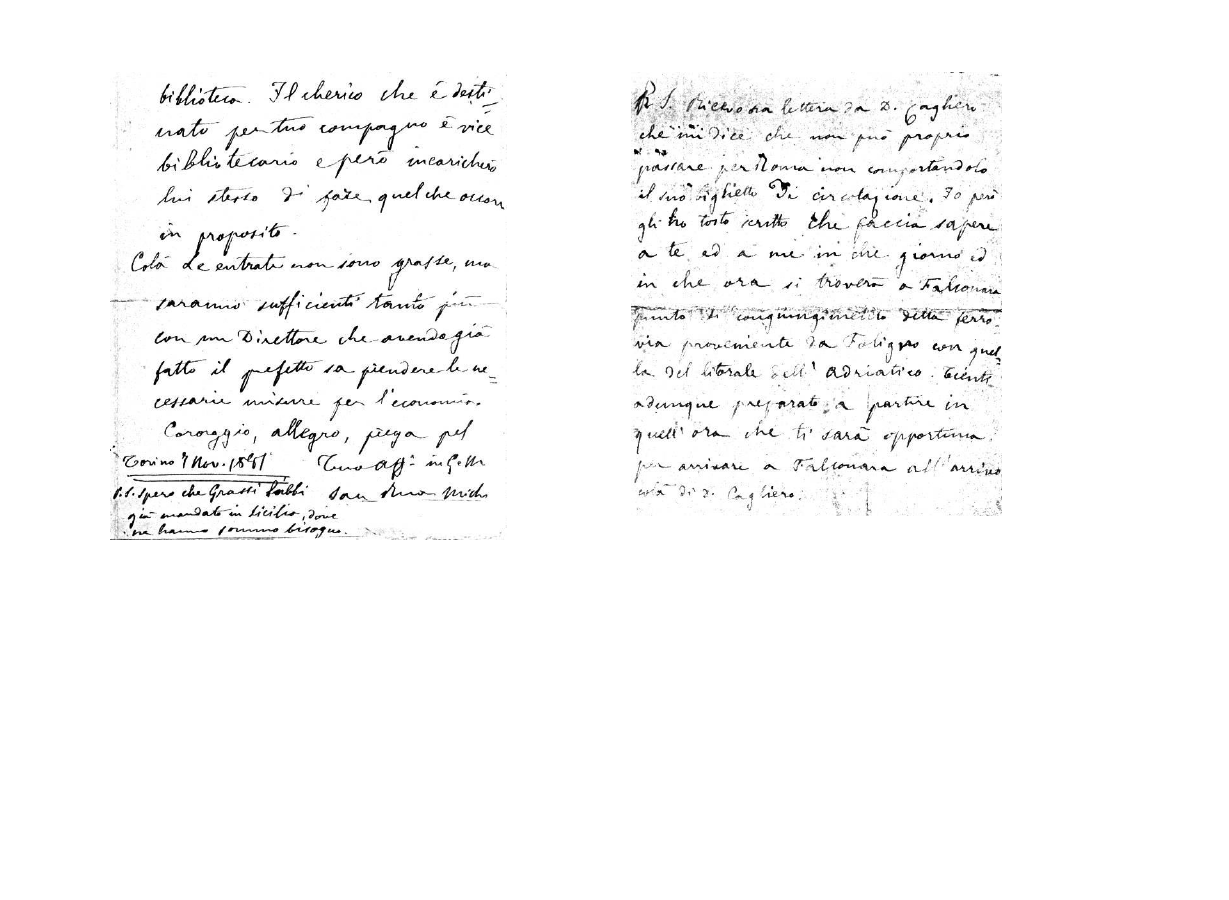 biblioteca. Il cherico che è desti-
nato per tuo compagno è vice
bibliotecario e però incaricherò
lui stesso di fare quel che occorr
in proposito.
Colà Le entrate non sono grasse, ma
saranno sufficienti tanto più
con un Direttore che avendo già
fatto il prefetto sa prendere le ne=
cessarie misure per l'economia.
Coraggio, allegro, prega pel
Torino 7 Nov. Tuo aff.° in G.
P.S. Spero che Grassi l'abbi
già mandato in Sicilia, dove
ne hanno sommo bisogno.
P. S. Ricevo ora lettera da D. Cagliero
che mi dice che non può proprio
passare per Roma non comportandolo
il suo biglietto Di circolazione. Io però
gli ho tosto scritto che faccia sapere
a te ed a me in che giorno ed
in che ora si troverà a Falconara
punto di congiungimento della ferro-
via proveniente da Foligno con quel-
la del litorale dell'adriatico. Tienti
adunque preparato a partire in
quell'ora che ti sarà opportuna
per arrivare a Falconara all'arrivo
colà di D. Cagliero.